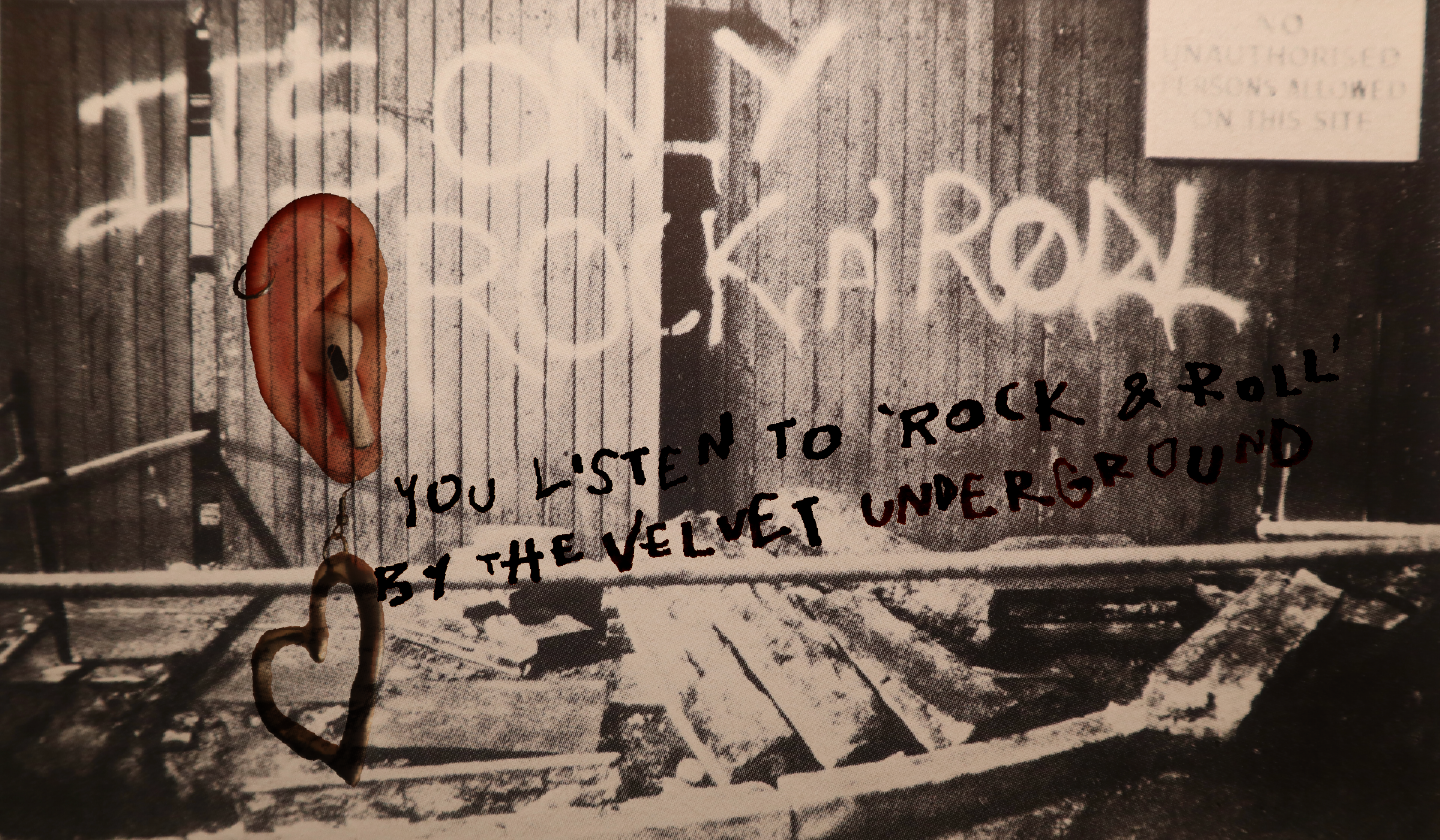 IT'S ONLY
ROCK N' ROLL
NO
UNAUTHORISED
PERSONS ALLOWED
ON THIS SITE
YOU LISTEN TO 'ROCK & ROLL'
BY THE VELVET UNDERGROUND